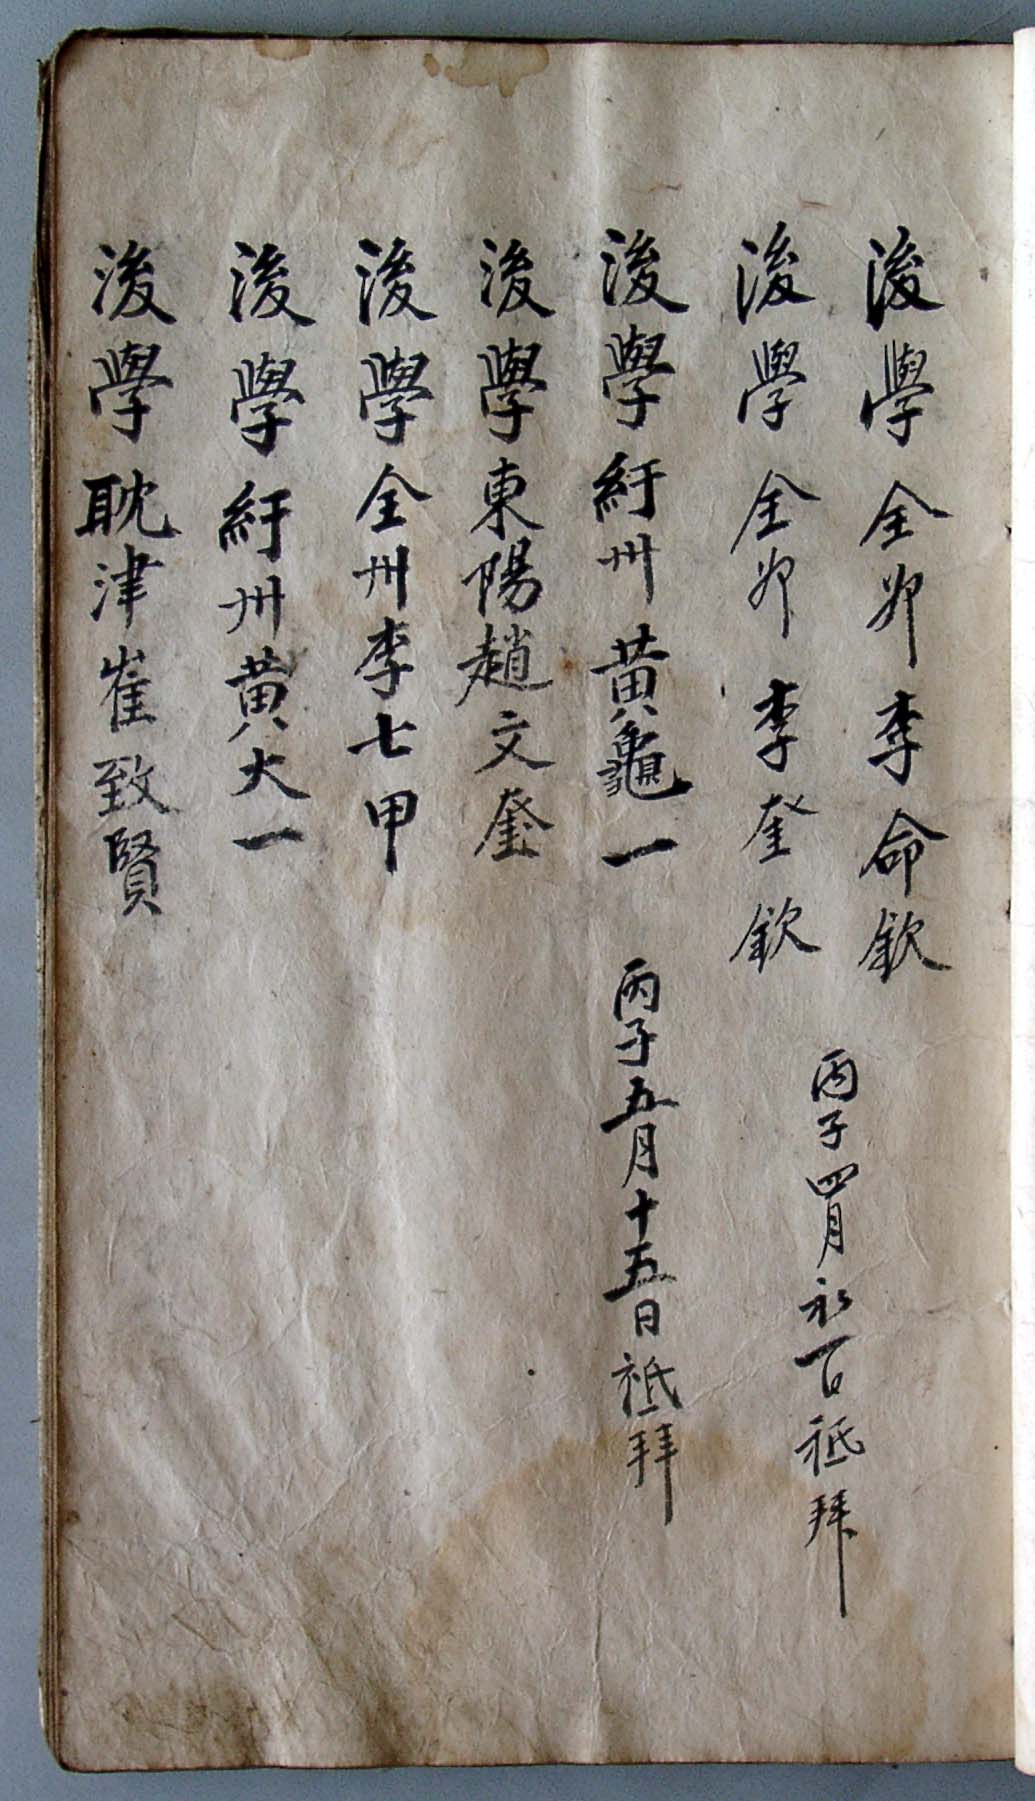 後學全州李命欽
後學全州李奎欽
丙子四月初一日祗拜
後學紆州黃龜一
丙子五月十五日祗拜
後學東陽趙文奎
後學全州李七甲
後學紆州黃大一
後學耽津崔致賢